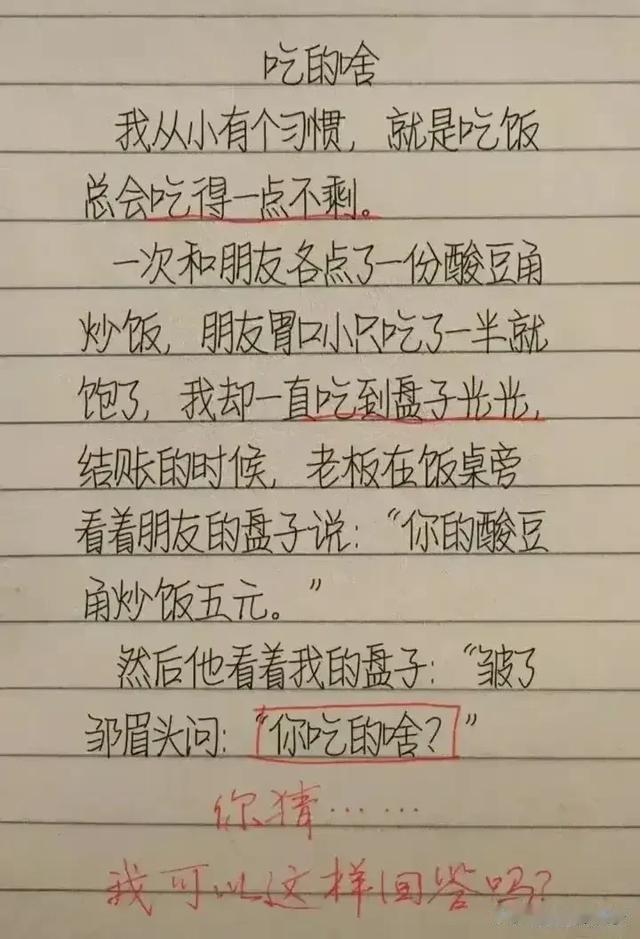 吃的啥
我从小有个习惯，就是吃饭
总会吃得一点不剩。
一次和朋友各点了一份酸豆角
炒饭，朋友胃口小只吃了一半就
饱了，我却一直吃到盘子光光，
结账的时候，老板在饭桌旁
看着朋友的盘子说：“你的酸豆
角炒饭五元。”
然后他看着我的盘子：“皱了
邹眉头问：“你吃的啥？”
你猜……
我可以这样回答吗？